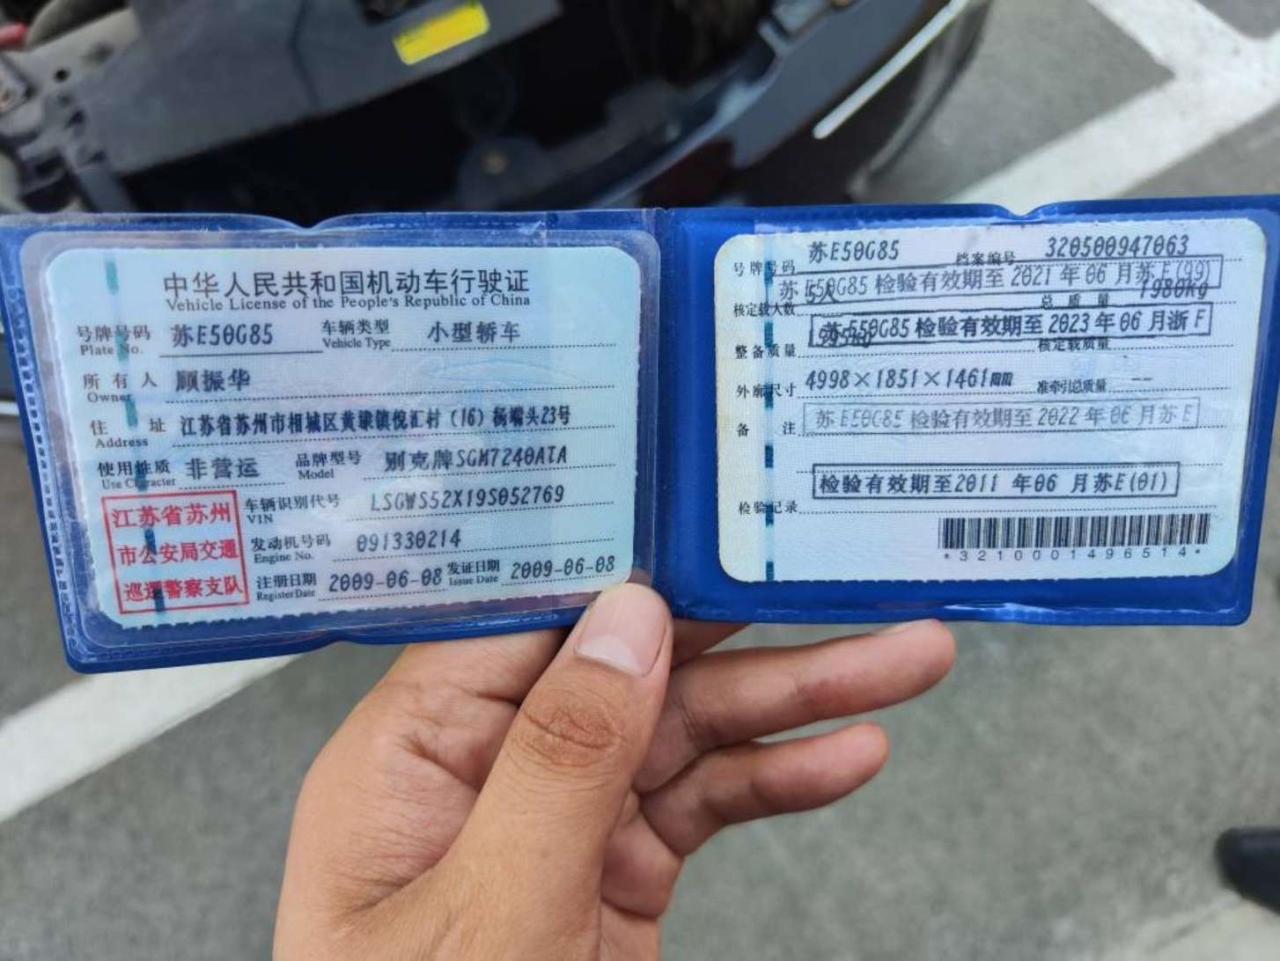 中华人民共和国机动车行驶证
Vehicle License of the People's Republic of China
号牌号码 苏E50G85 车辆类型 小型轿车
Plate No. Vehicle Type
所有人 顾振华
Owner
住址 江苏省苏州市相城区黄埭镇倪汇村(16)杨端头23号
Address
使用性质 非营运 品牌型号 别克牌SGM7240ATA
Use Character Model
车辆识别代号 LSGWS52X19S052769
VIN
发动机号码 091330214
Engine No.
注册日期 2009-06-08 发证日期 2009-06-08
Register Date Issue Date
江苏省苏州
市公安局交通
巡逻警察支队
号牌号码 苏E50G85 档案编号 320500947063
苏E50G85 检验有效期至 2021 年 06 月苏E(99)
核定载人数 5人 总质量 1980kg
苏E50G85 检验有效期至 2023 年 06 月浙F
整备质量 核定载质量
外廓尺寸 4998×1851×1461mm 准牵引总质量 --
备注 苏E50G85 检验有效期至 2022 年 06 月苏E
检验有效期至2011 年06 月苏E(01)
检验记录
*3210001496514*